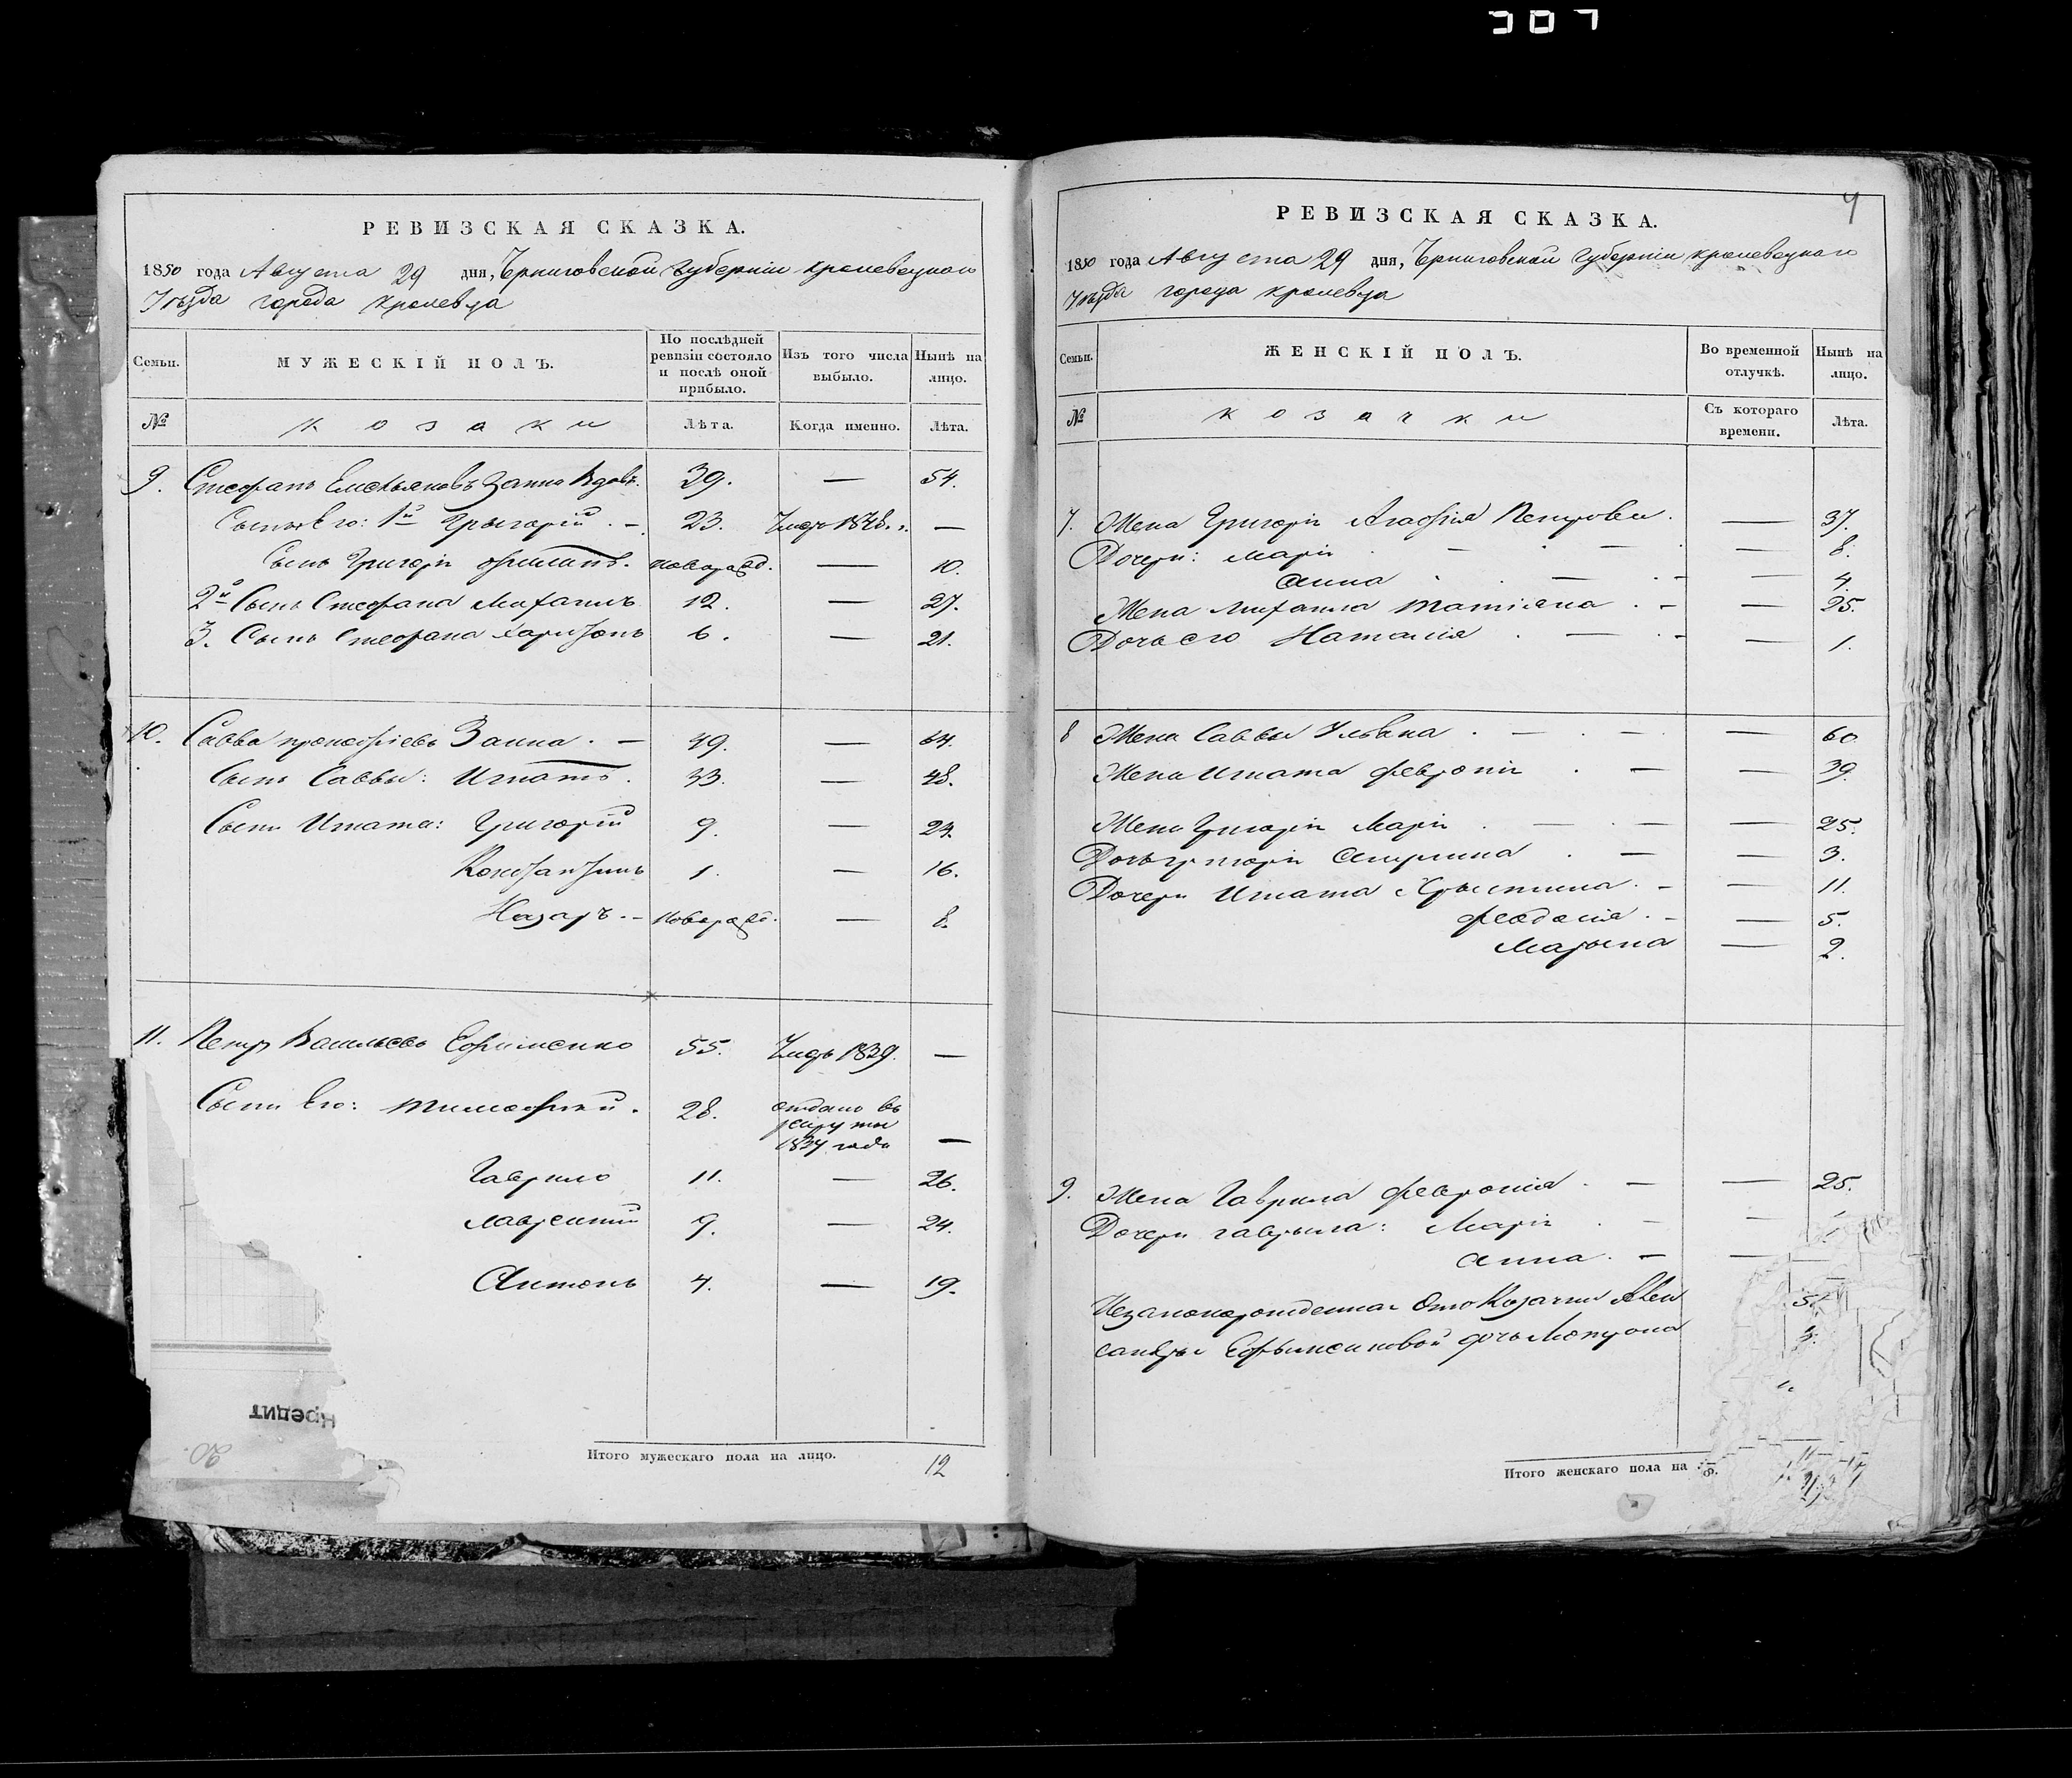 307
РЕВИЗСКАЯ СКАЗКА.
1850 года Августа 29 дня, Черниговской Губерніи Кролевецкаго
Уѣзда города Кролевца
Семьи.
МУЖЕСКІЙ ПОЛЪ.
По послѣдней ревизіи состояло и послѣ оной прибыло.
Изъ того числа выбыло.
Нынѣ на лицо.
№
Козаки
Лѣта.
Когда именно.
Лѣта.
9. Стефанъ Емельяновъ Заика 39. — 54.
Сынъ Его: 1й Грыгорій . — 23. Умеръ 1848. —
Сынъ Григорія Филипъ. новорожд. — 10.
2й Сынъ Стефана Михаилъ 12. — 27.
3. Сынъ Стефана Харитонъ 6. — 21.
10. Савва Прокофіевъ Заика . — 49. — 64.
Сынъ Саввы: Игнатъ . 33. — 48.
Сыны Игната: Григорій 9. — 24.
Константинъ 1. — 16.
Назаръ . — новорожд. — 8.
11. Петръ Васильевъ Ефименко 55. Умеръ 1839. —
Сыны Его: Тимофей . 28. отданъ въ
рекруты
1834 года —
Гаврило 11. — 26.
Лаврентій 9. — 24.
Антонъ 4. — 19.
Кредит
Итого мужескаго пола на лицо. 12
4
РЕВИЗСКАЯ СКАЗКА.
1850 года Августа 29 дня, Черниговской Губерніи Кролевецкаго
Уѣзда города Кролевца
Семьи.
ЖЕНСКІЙ ПОЛЪ.
Во временной отлучкѣ.
Нынѣ на лицо.
№
Козачки
Съ котораго времени.
Лѣта.
7. Жена Григорія Агафія Петрова . — 37.
Дочери: Марія . — . — . — 8.
Анна . . — . — — 4.
Жена Михаила Татіана . — — 25.
Дочь его Наталія . — . — — 1.
8 Жена Саввы Ульяна . — . — . — 60
Жена Игната Февронія . — — 39.
Жена Григорія Марія . — . — — 25.
Дочь Григорія . — — 3.
Дочери Игната Христина . — — 11.
Феодосія . — — 5.
Марына — 2.
9. Жена Гаврила Февронія . — — 25.
Дочери Гаврыла: Марія . — —
Анна . — —
Незаконорожденная Отъ Козачки Алек
сандры Ефыменковой дочь Матрона
Итого женскаго пола на